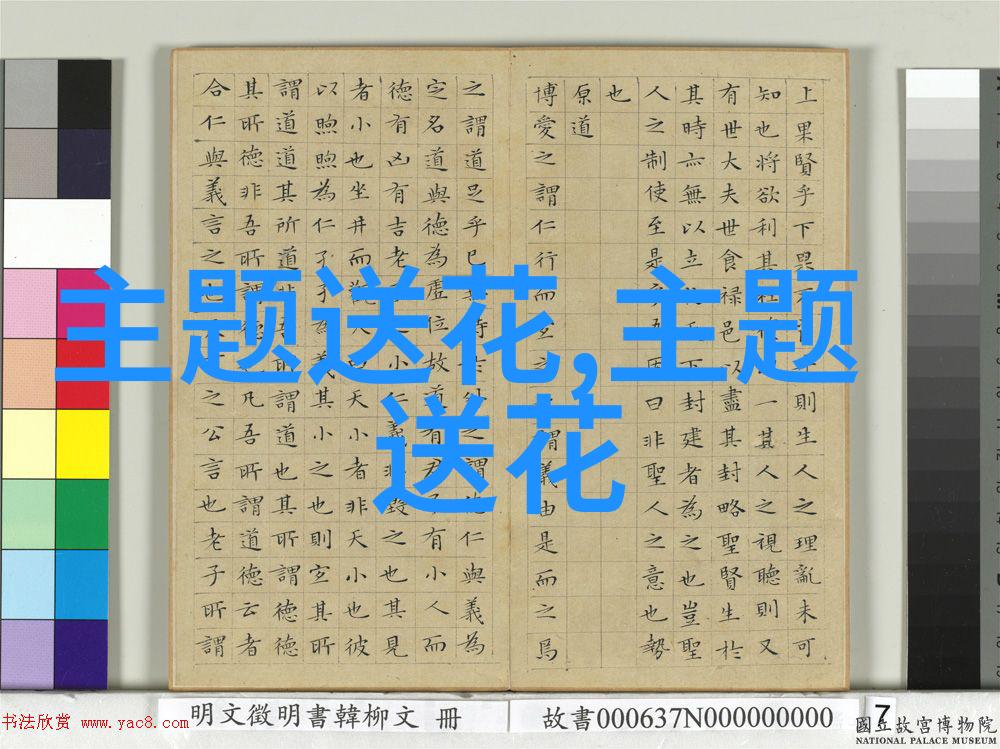 上果賢乎下不則生人之理亂未可
知也將欲利其社一其人之視聽則又
有世大夫世食禄邑以盡其封略聖賢生於
其時亦無以立下封建者為之也豈聖
人之制使至是乎吾固曰非聖人之意也勢
也
原道
博愛之謂仁行而宜之之謂義由是而之焉
之謂道足乎己無待於外之謂仁與義為
定名道與德為虛位故道有君子有小人而
德有凶有吉老小仁義非毀之也其見
者小也坐井而觀天曰天小者非天小也彼
以煦煦為仁孑孑為義其小之也則宜其所
謂道道其所道非吾所謂道也其所謂德德
其所德非吾所謂德也凡吾所謂道德云者
合仁與義言之也之公言也老子所謂
主题送花,主题
送花
明文徵明書韓柳文 冊
故書000637N000000000
7
书法欣赏 www.yac8.com
國立故宮博物院
NATIONAL PALACE MUSEUM